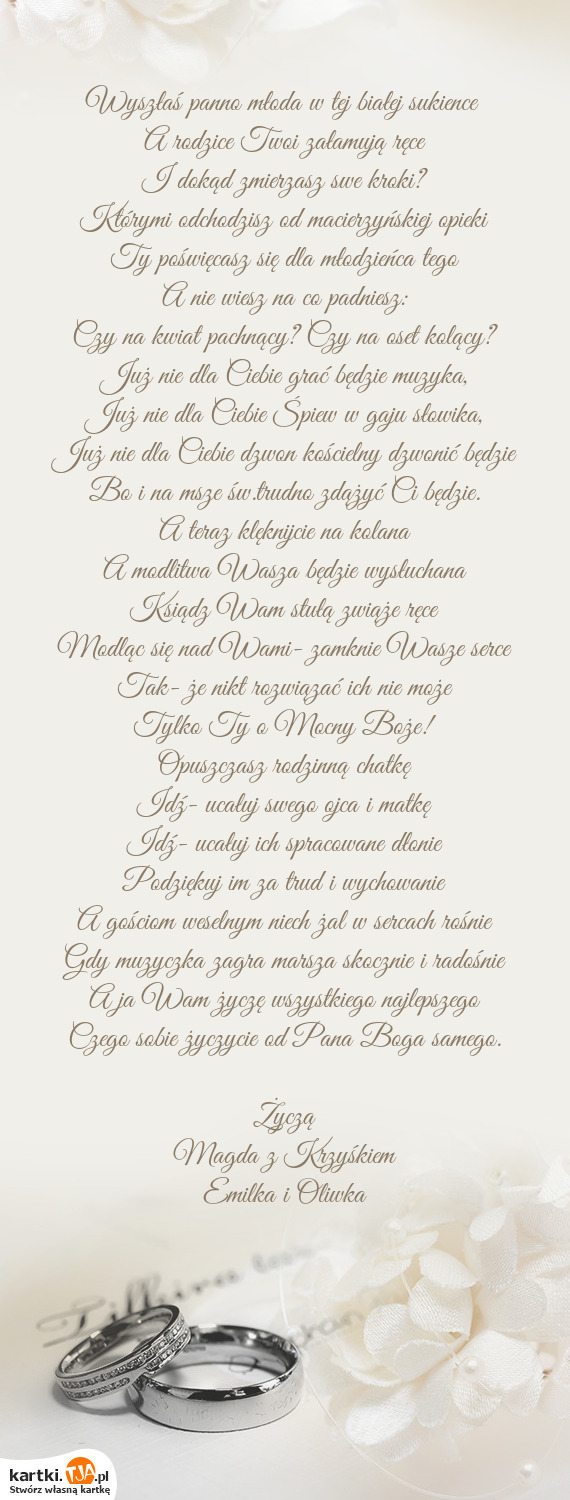 Wyszłaś panno młoda w tej białej sukience
A rodzice Twoi załamują ręce
I dokąd zmierzasz swe kroki?
Którymi odchodzisz od macierzyńskiej opieki
Ty poświęcasz się dla młodzieńca tego
A nie wiesz na co padniesz:
Czy na kwiat pachnący? Czy na oset kolący?
Już nie dla Ciebie grać będzie muzyka,
Już nie dla Ciebie Śpiew w gaju słowika,
Już nie dla Ciebie dzwon kościelny dzwonić będzie
Bo i na msze św.trudno zdążyć Ci będzie.
A teraz klęknijcie na kolana
A modlitwa Wasza będzie wysłuchana
Ksiądz Wam stułą zwiąże ręce
Modląc się nad Wami- zamknie Wasze serce
Tak- że nikt rozwiązać ich nie może
Tylko Ty o Mocny Boże!
Opuszczasz rodzinną chatkę
Idź- ucałuj swego ojca i matkę
Idź- ucałuj ich spracowane dłonie
Podziękuj im za trud i wychowanie
A gościom weselnym niech żal w sercach rośnie
Gdy muzyczka zagra marsza skocznie i radośnie
A ja Wam życzę wszystkiego najlepszego
Czego sobie życzycie od Pana Boga samego.
Życzą
Magda z Krzyśkiem
Emilka i Oliwka
kartki.TJA.pl
Stwórz własną kartkę